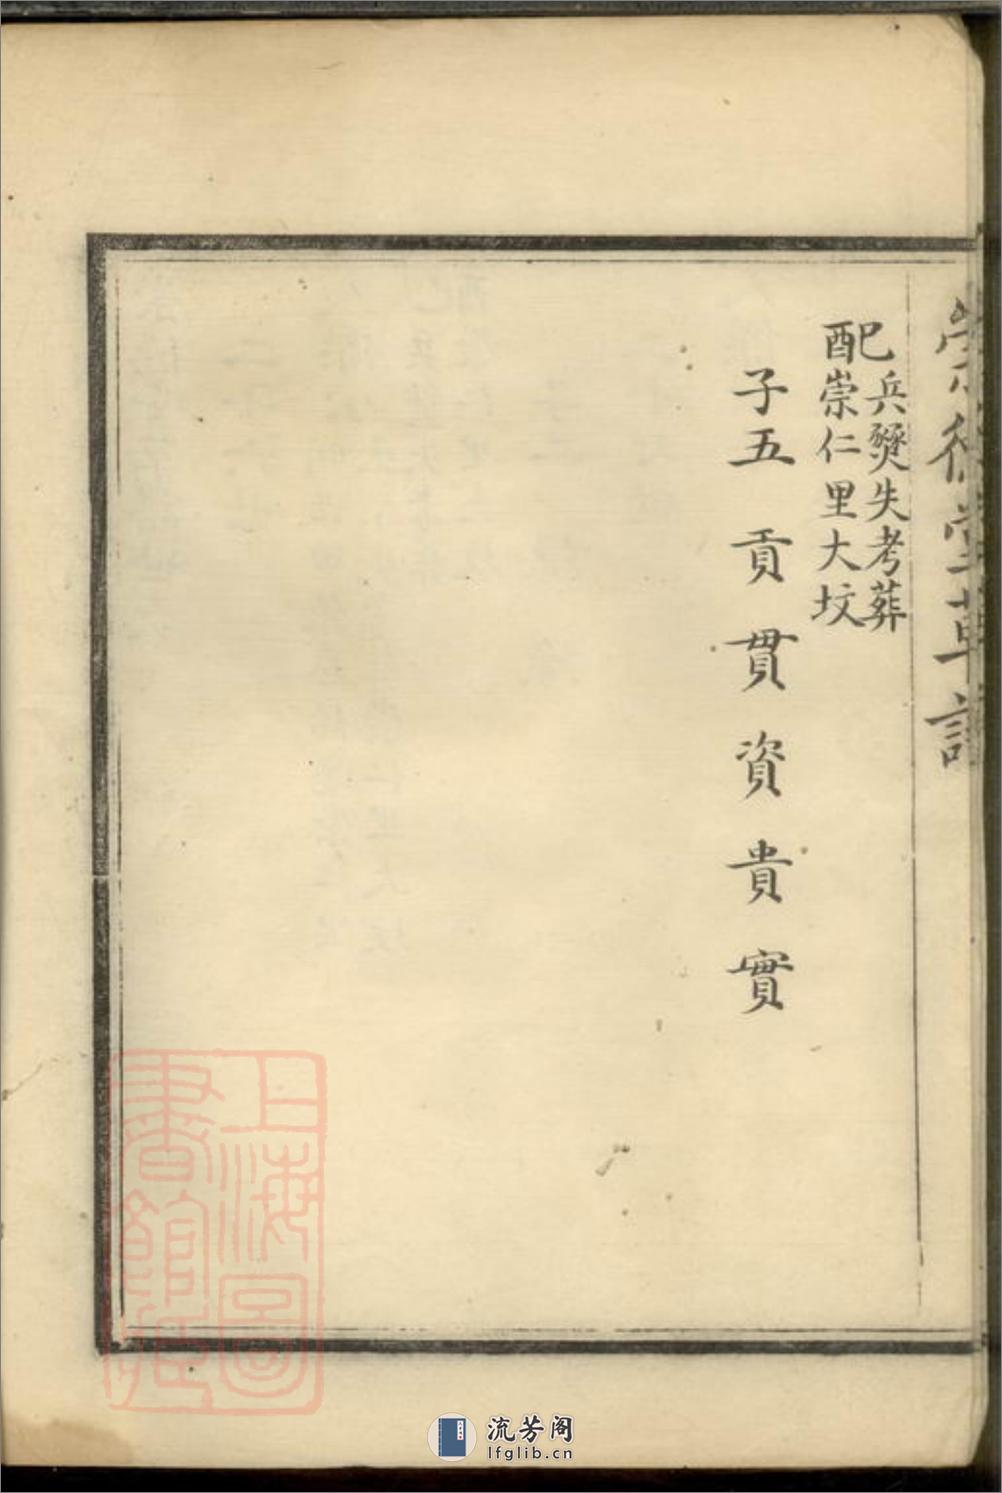 崇德堂草譜
配兵燹失考葬
崇仁里大坟
子五 貢 貫 資 貴 實
上海圖
書館藏
流芳阁
lfglib.cn